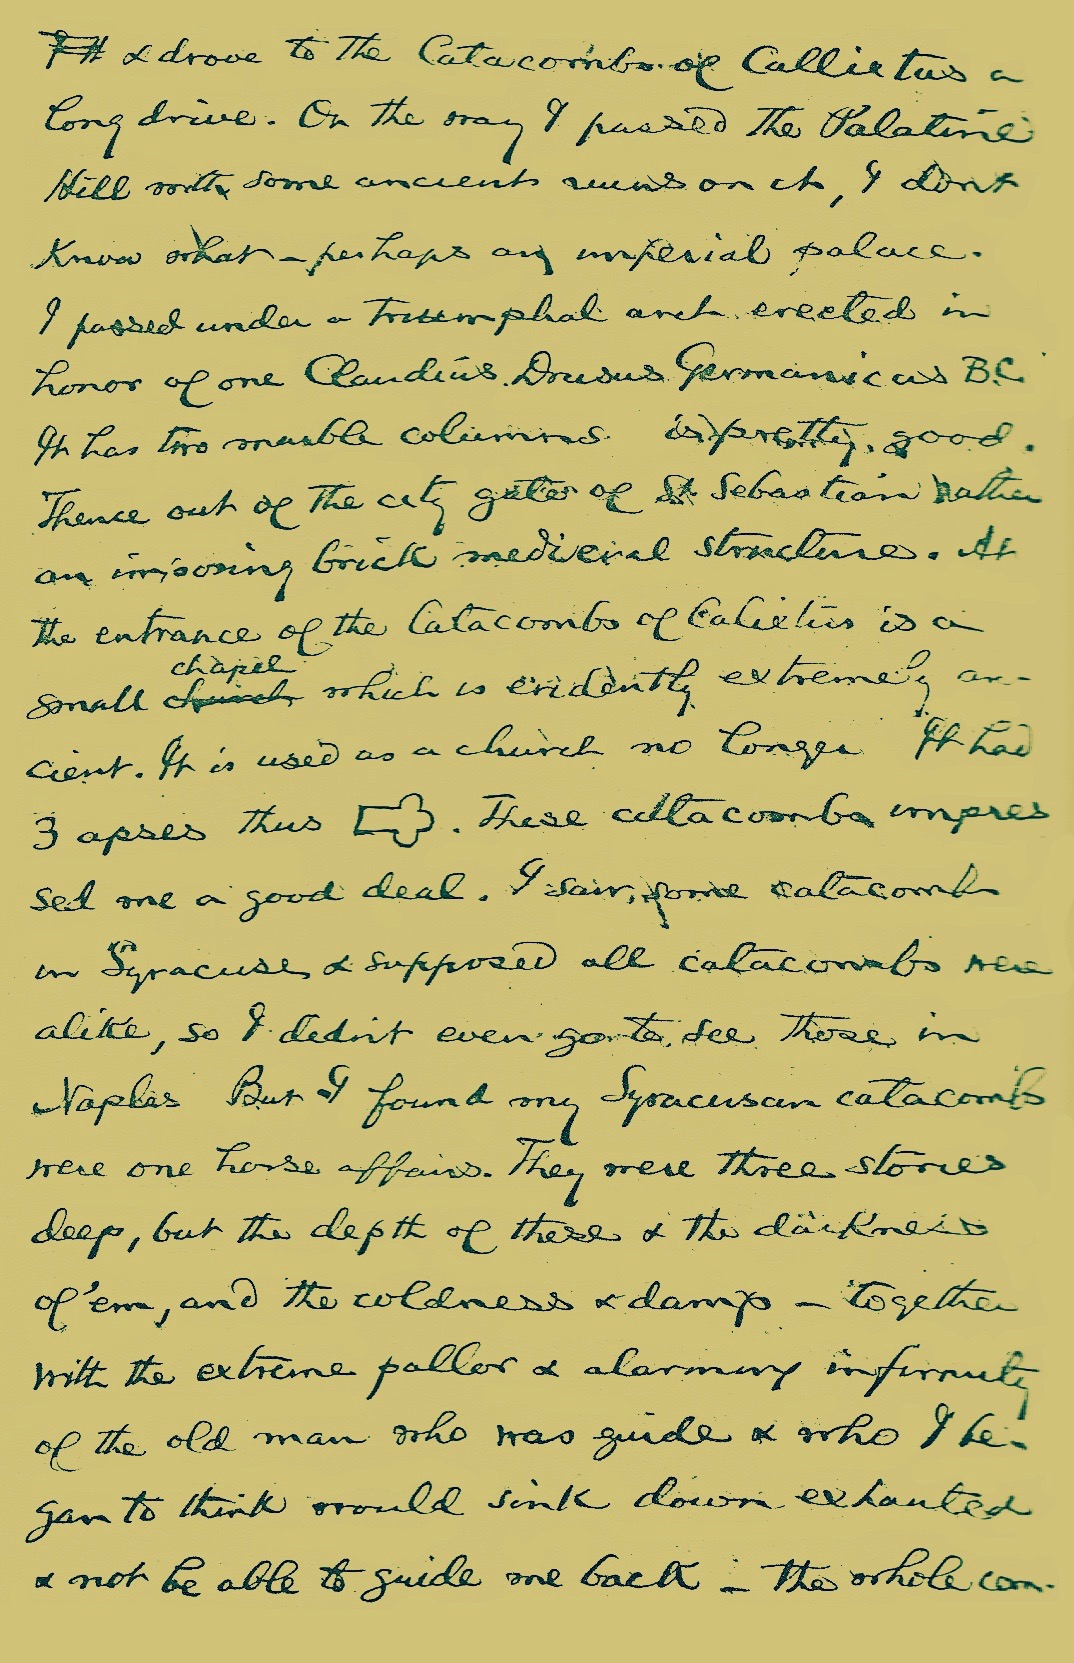 & drove to the Catacombs of Callixtus a
long drive. On the way I passed the Palatine
Hill with some ancient ruins on it, I dont
know what – perhaps an imperial palace.
I passed under a triumphal arch erected in
honor of one Claudius Drusus Germanicus B.C.
It has two marble columns is pretty good.
Thence out of the city gate of St Sebastian rather
an imposing brick medieval structure. At
the entrance of the Catacombs of Calixtus is a
chapel
small church which is evidently extremely an-
cient. It is used as a church no longer It had
3 apses thus . These catacombs impres
sed me a good deal. I saw some catacombs
in Syracuse & supposed all catacombs were
alike, so I didn't even go to see those in
Naples But I found my Syracusan catacombs
were one horse affairs. They were three stories
deep, but the depth of these & the darkness
of 'em, and the coldness & damp – together
with the extreme pallor & alarming infirmity
of the old man who was guide & who I be-
gan to think would sink down exhausted
& not be able to guide me back – the whole com-